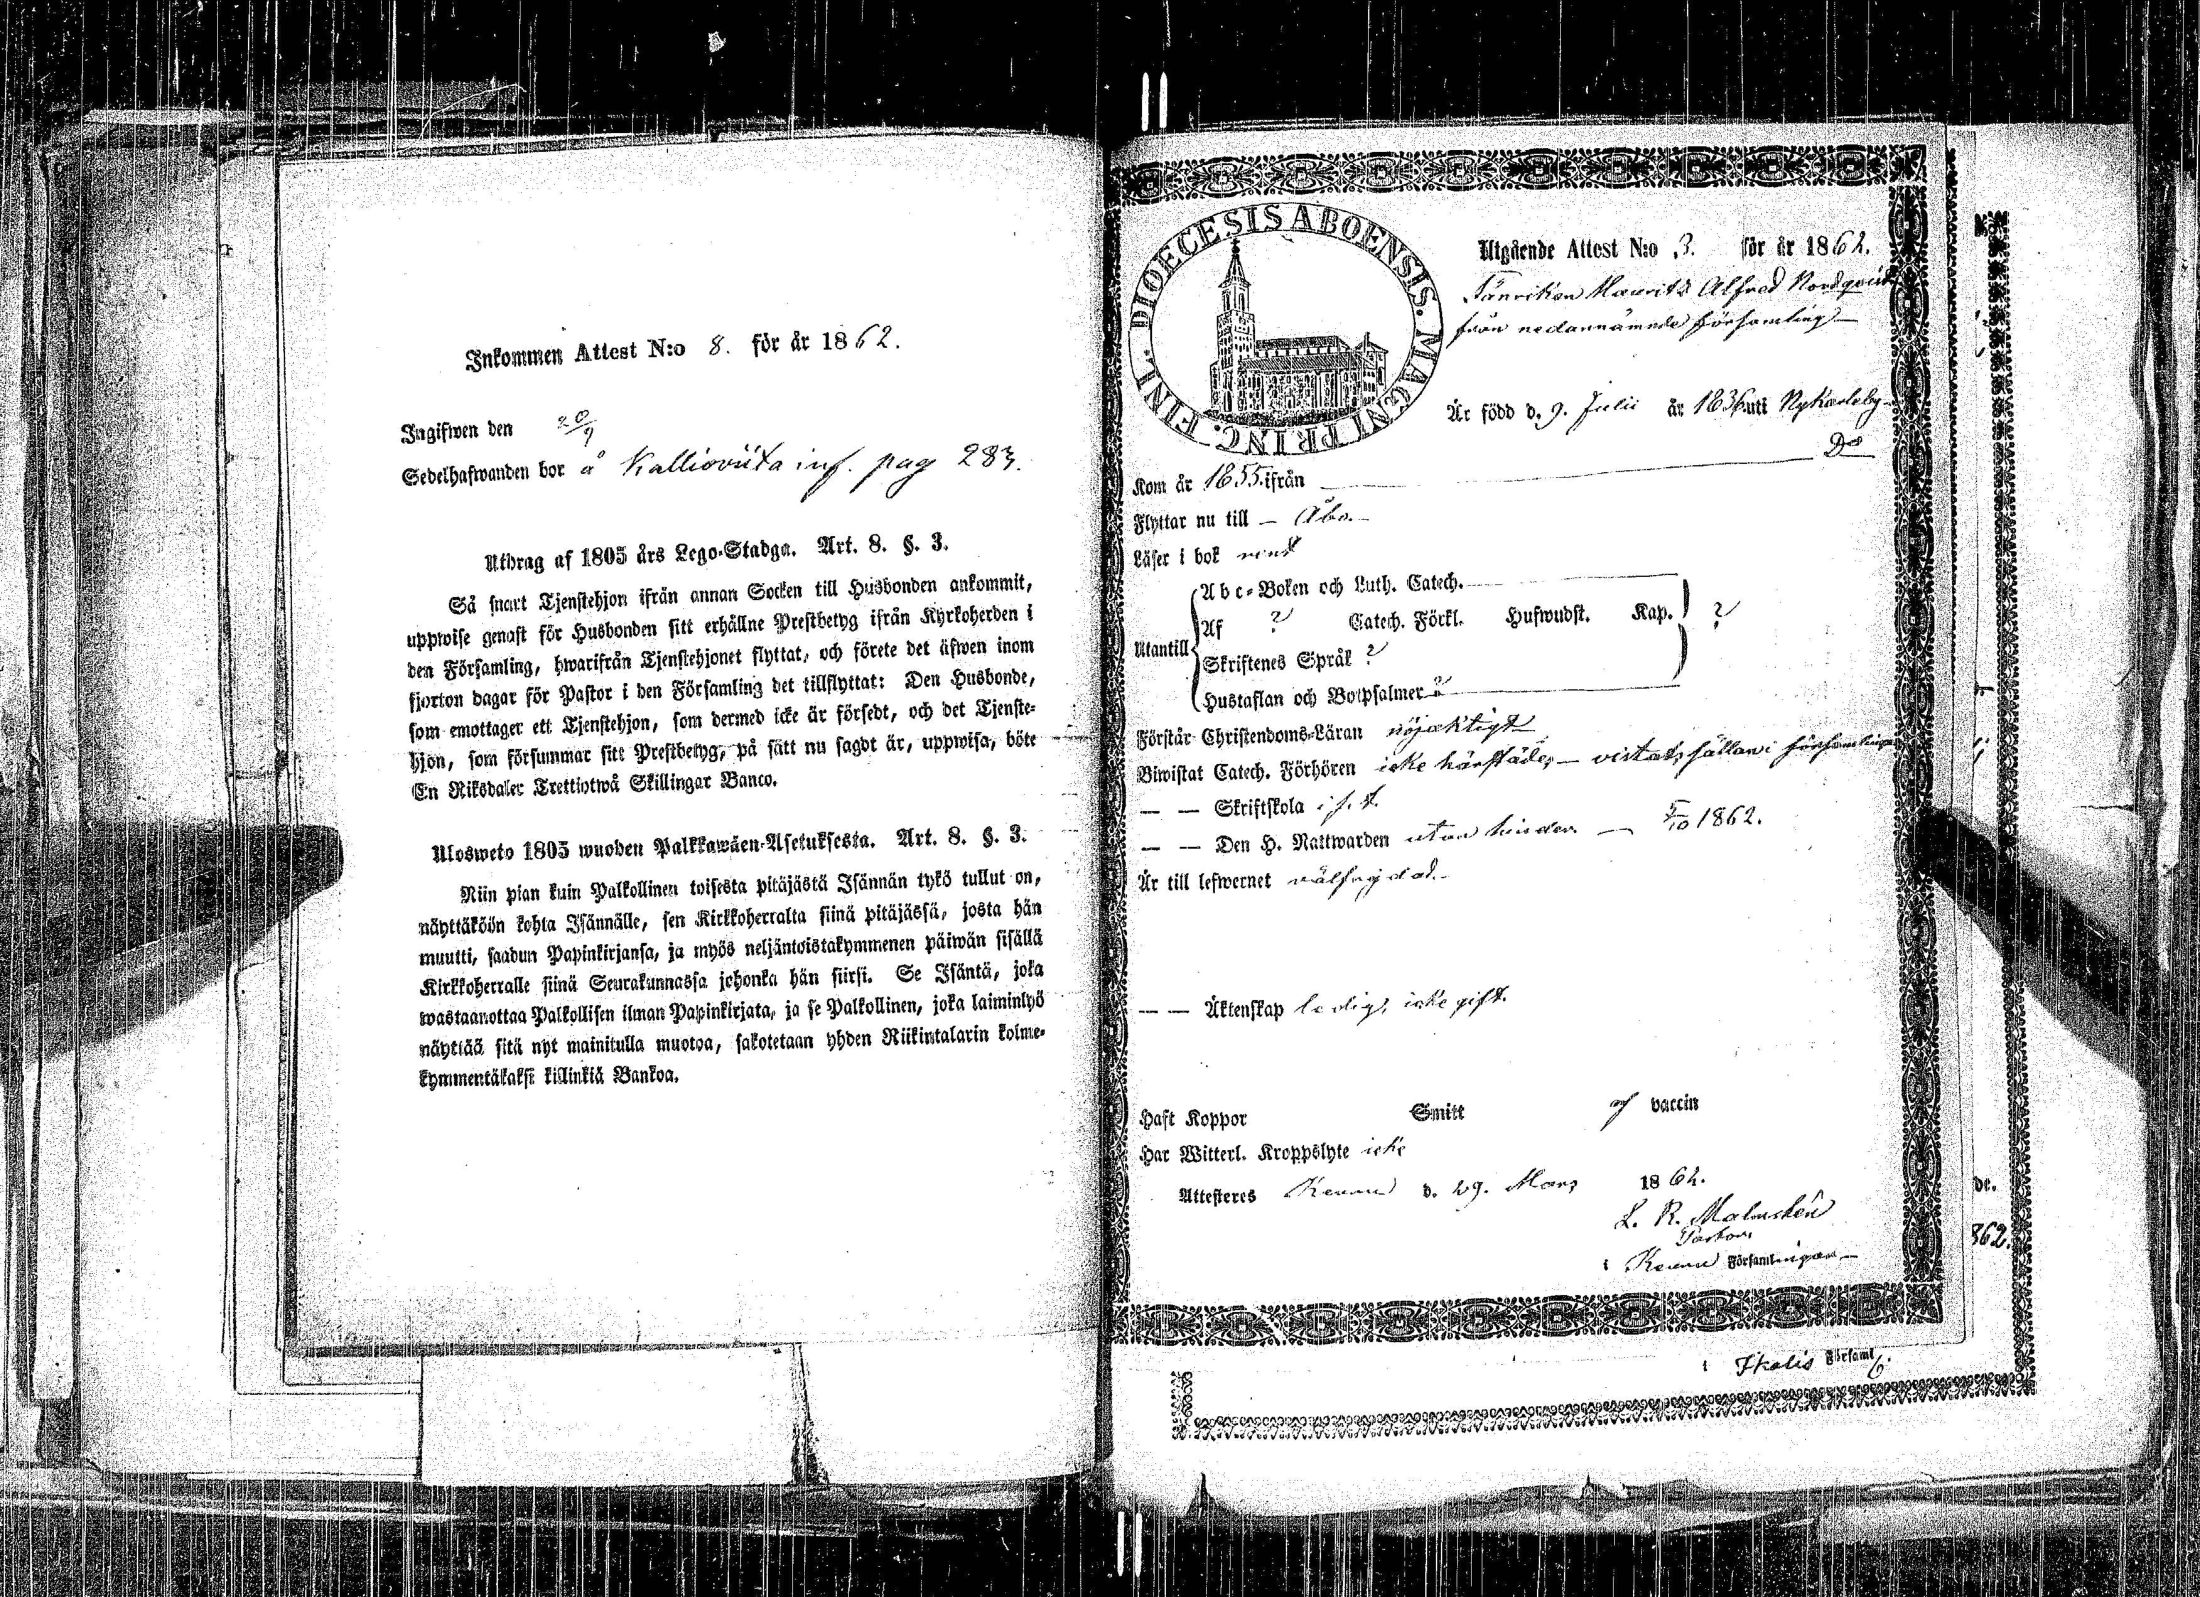 Inkommen Attest N:o 8. för år 1862.
Ingifwen den 20/9
Sedelhafwanden bor å Kalliovüta inf. pag 283.
Utdrag af 1805 års Lego-Stadga. Art. 8. §. 3.
Så snart Tjenstehjon ifrån annan Socken till Husbonden ankommit,
uppwise genast för Husbonden sitt erhållne Prestbetyg ifrån Kyrkoherden i
den Församling, hwarifrån Tjenstehjonet flyttat, och förete det äfwen inom
fjorton dagar för Pastor i den Församling det tillflyttat: Den Husbonde,
som emottager ett Tjenstehjon, som dermed icke är försedt, och det Tjenste-
hjon, som försummar sitt Prestbetyg, på sätt nu sagdt är, uppwisa, böte
En Riksdaler Trettiotwå Skillingar Banco.
Ulosweto 1805 wuoden Palkkawäen-Asetuksesta. Art. 8. §. 3.
Niin pian kuin Palkollinen toisesta pitäjästä Isännän tykö tullut on,
näyttäköön kohta Isännälle, sen Kirkkoherralta siinä pitäjässä, josta hän
muutti, saadun Papinkirjansa, ja myös neljäntoistakymmenen päiwän sisällä
Kirkkoherralle siinä Seurakunnassa johonka hän siirsi. Se Isäntä, joka
wastaanottaa Palkollisen ilman Papinkirjata, ja se Palkollinen, joka laiminlyö
näyttää sitä nyt mainitulla muotoa, sakotetaan yhden Riikintalarin kolme-
kymmentäkaksi killinkiä Bankoa.
DIOECESIS ABOENSIS. MAGNI PRINC. FINL.
Utgående Attest N:o 3. för år 1862.
Fänriken Mauritz Alfred Nordqvist
från nedannämnde församling
Är född d. 9. Julii år 1836 uti Nykarleby
Kom år 1855. ifrån D:o
Flyttar nu till — Åbo.
Läser i bok rent
Abc-Boken och Luth. Catech.
Utantill Af ? Catech. Förkl. Hufwudst. Kap. ?
Skriftenes Språk ?
Hustaflan och Botpsalmer ?
Förstår Christendoms-Läran nöjaktigt
Biwistat Catech. Förhören icke härstädes — vistats sällan i församlingen
— — Skriftskola i s. t.
— — Den H. Nattwarden utan hinder. — 5/10 1862.
Är till lefwernet välfrejdad.
— — Äktenskap ledig, icke gift.
Haft Koppor Smitt af vaccin
Har Witterl. Kroppslyte icke
Attesteres Keuru d. 29. Mars 1862.
L. R. Malmstén
Pastor
i Keuru Församlingen
de.
862.
i Ikalis Församl.